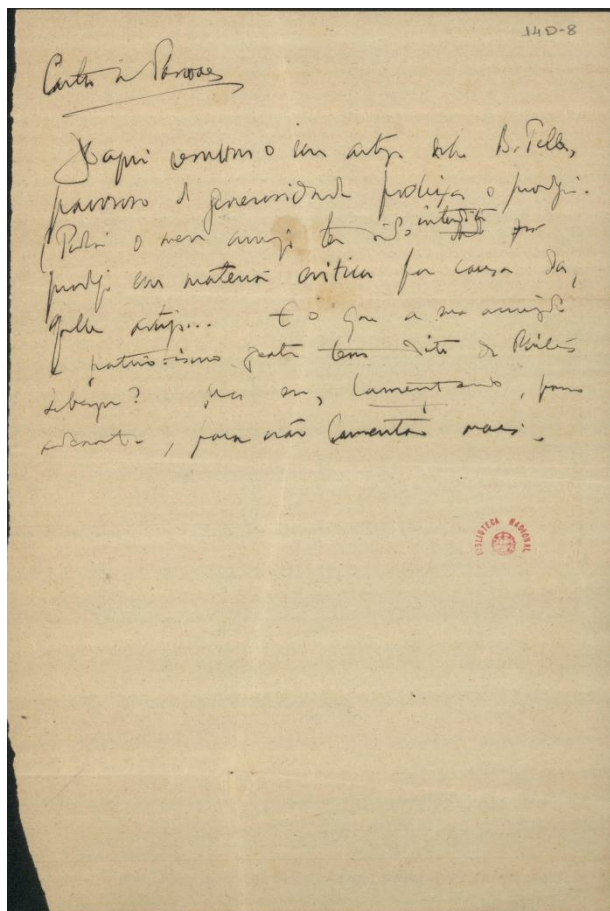 14D-8
Carta a Pascoaes
D'aqui o seu artigo sobre B. Telles,
pavoroso de generosidade prodiga o prodigio.
(Podia o meu amigo ter sido interdito por
prodigo em materia critica por causa da-
quelle artigo... E o que a sua
e patriotismo tem dito de
? Mas eu, lamentando, passo
adeante, para não lamentar mais.
BIBLIOTECA NACIONAL